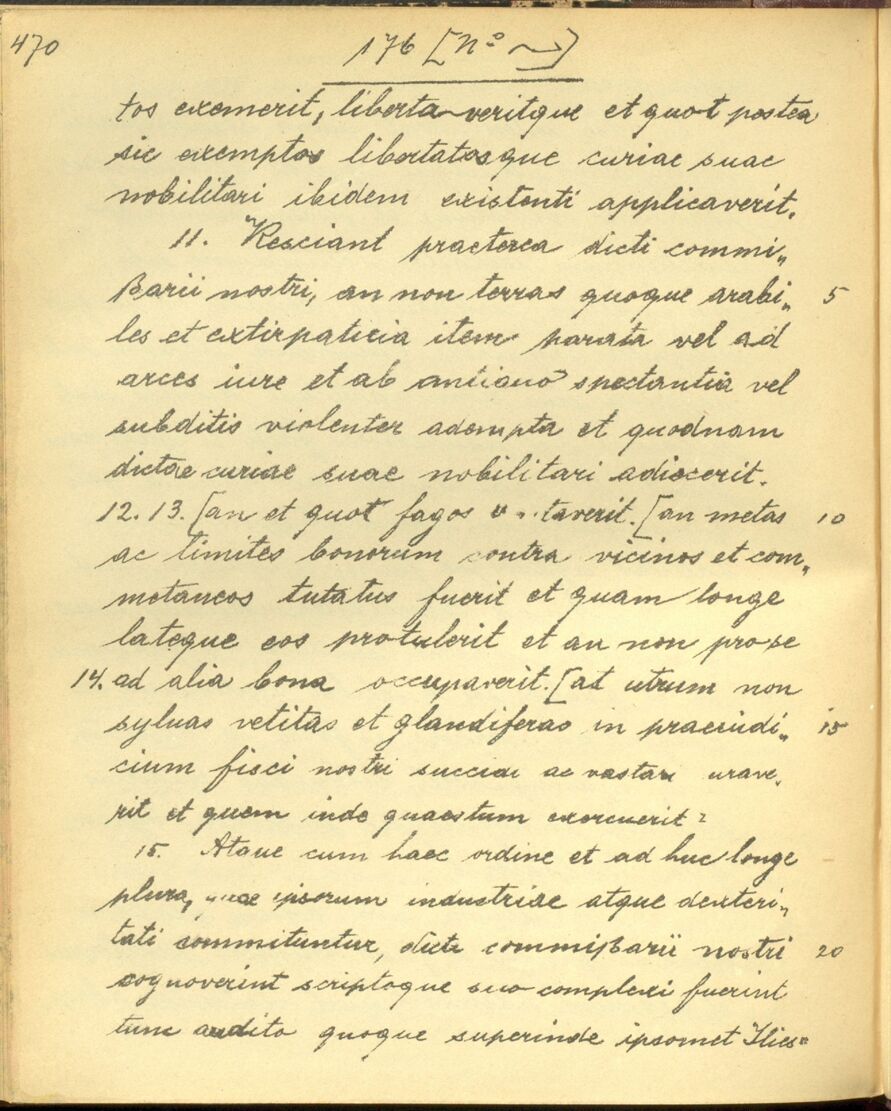 470
176 [No
tos exemerit, libertaveritque et quot postea
sic exemptos libertatosque curiae suae
nobilitari ibidem existenti applicaverit.
11. Resciant praeterea dicti commi„
ßarii nostri, an non terras quoque arabi„ 5
les et extirpaticia item parata vel ad
arces iure et ab antiquo spectantia vel
subditis violenter adempta et quodnam
dictae curiae suae nobilitari adiecerit.
12. 13. [an et quot fagos taverit. [an metas 10
ac limites bonorum contra vicinos et com„
metaneos tutatus fuerit et quam longe
lateque eos protulerit et an non pro se
14. ad alia bona occupaverit. [at utrum non
syluas vetitas et glandiferas in praeiudi„ 15
cium fisci nostri succidi ac vastari
rit et quem inde quaestum exercuerit?
15. Atque cum haec ordine et ad huc longe
plura, quae ipsorum industriae atque dexteri„
tati commituntur, dicti commißarii nostri 20
cognoverint scriptoque suo complexi fuerint
tunc audito quoque superinde ipsomet